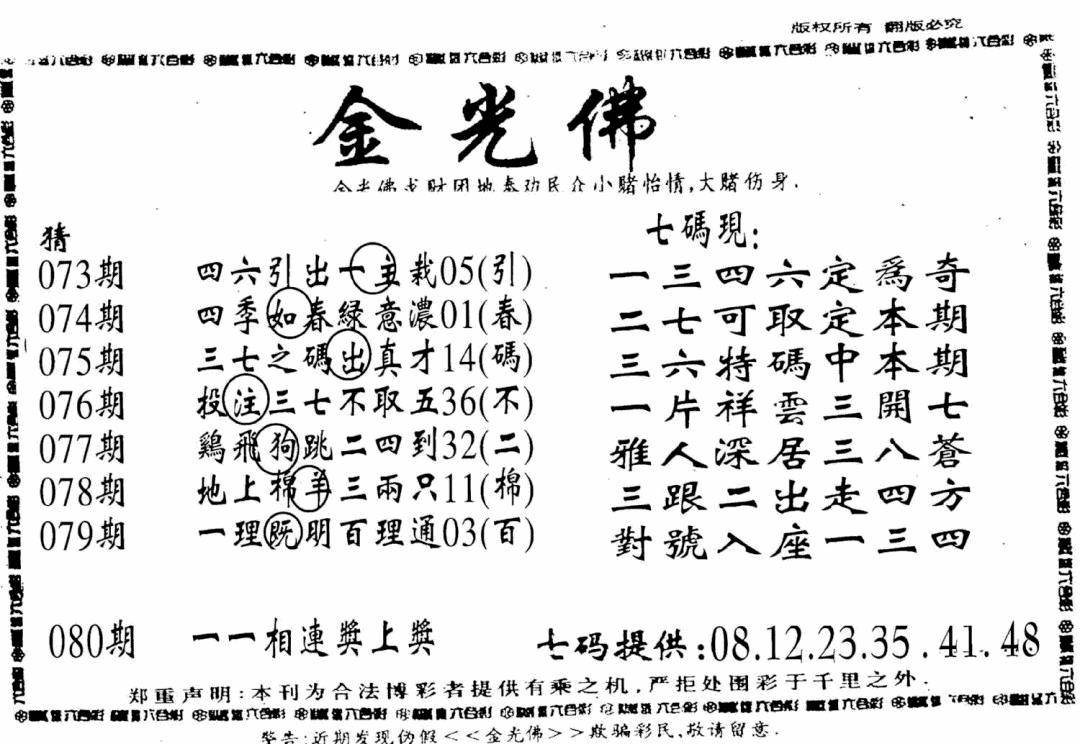 版权所有 翻版必究
金光佛
金光佛求财因地奉劝民众小赌怡情,大赌伤身.
猜
七碼現:
073期 四六引出十主栽05(引) 一三四六定為奇
074期 四季如春緑意濃01(春) 二七可取定本期
075期 三七之碼出真才14(碼) 三六特碼中本期
076期 投注三七不取五36(不) 一片祥雲三開七
077期 鷄飛狗跳二四到32(二) 雅人深居三八蒼
078期 地上棉羊三兩只11(棉) 三跟二出走四方
079期 一理既明百理通03(百) 對號入座一三四
080期 一一相連獎上獎 七码提供:08.12.23.35.41.48
郑重声明:本刊为合法博彩者提供有乘之机,严拒处围彩于千里之外.
警告:近期发现伪假<<金光佛>>欺骗彩民,敬请留意.